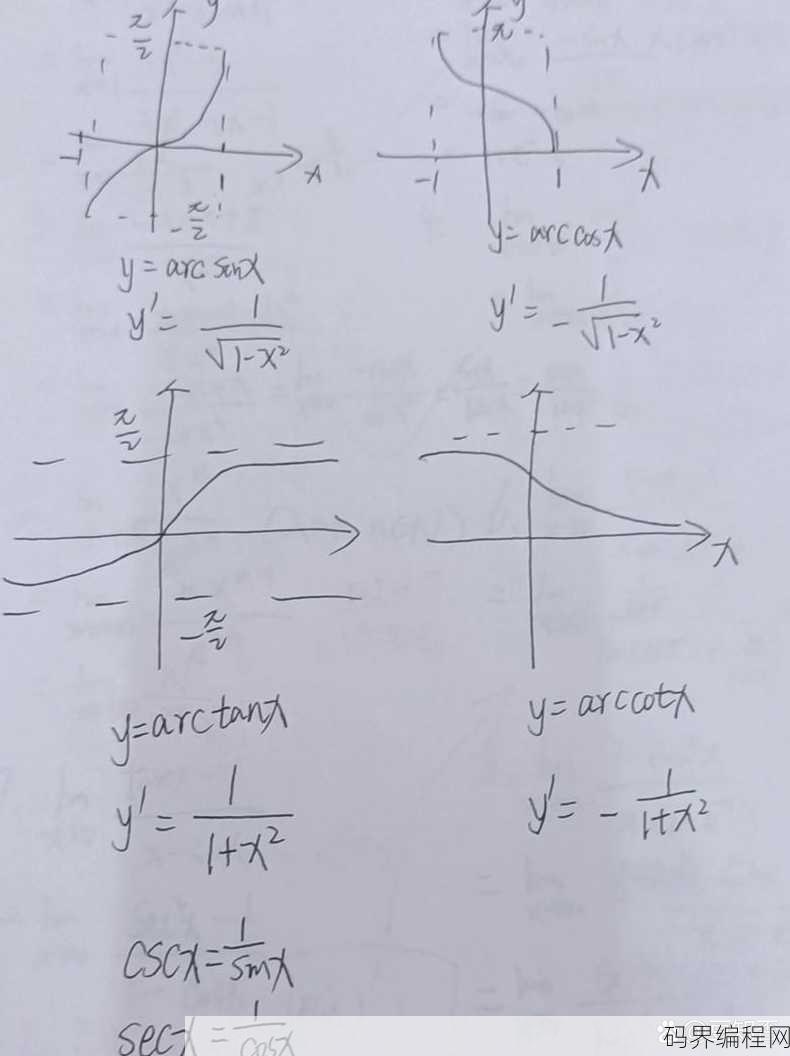 y
π/2
-1
x
-π/2
y = arcsinx
y' = 1/√(1-x²)
y
π
-1
1
x
y = arccosx
y' = - 1/√(1-x²)
π/2
-π/2
y=arctanx
y' = 1/(1+x²)
x
y= arccotx
y' = - 1/(1+x²)
cscx = 1/sinx
secx = 1/cosx
码界编程网